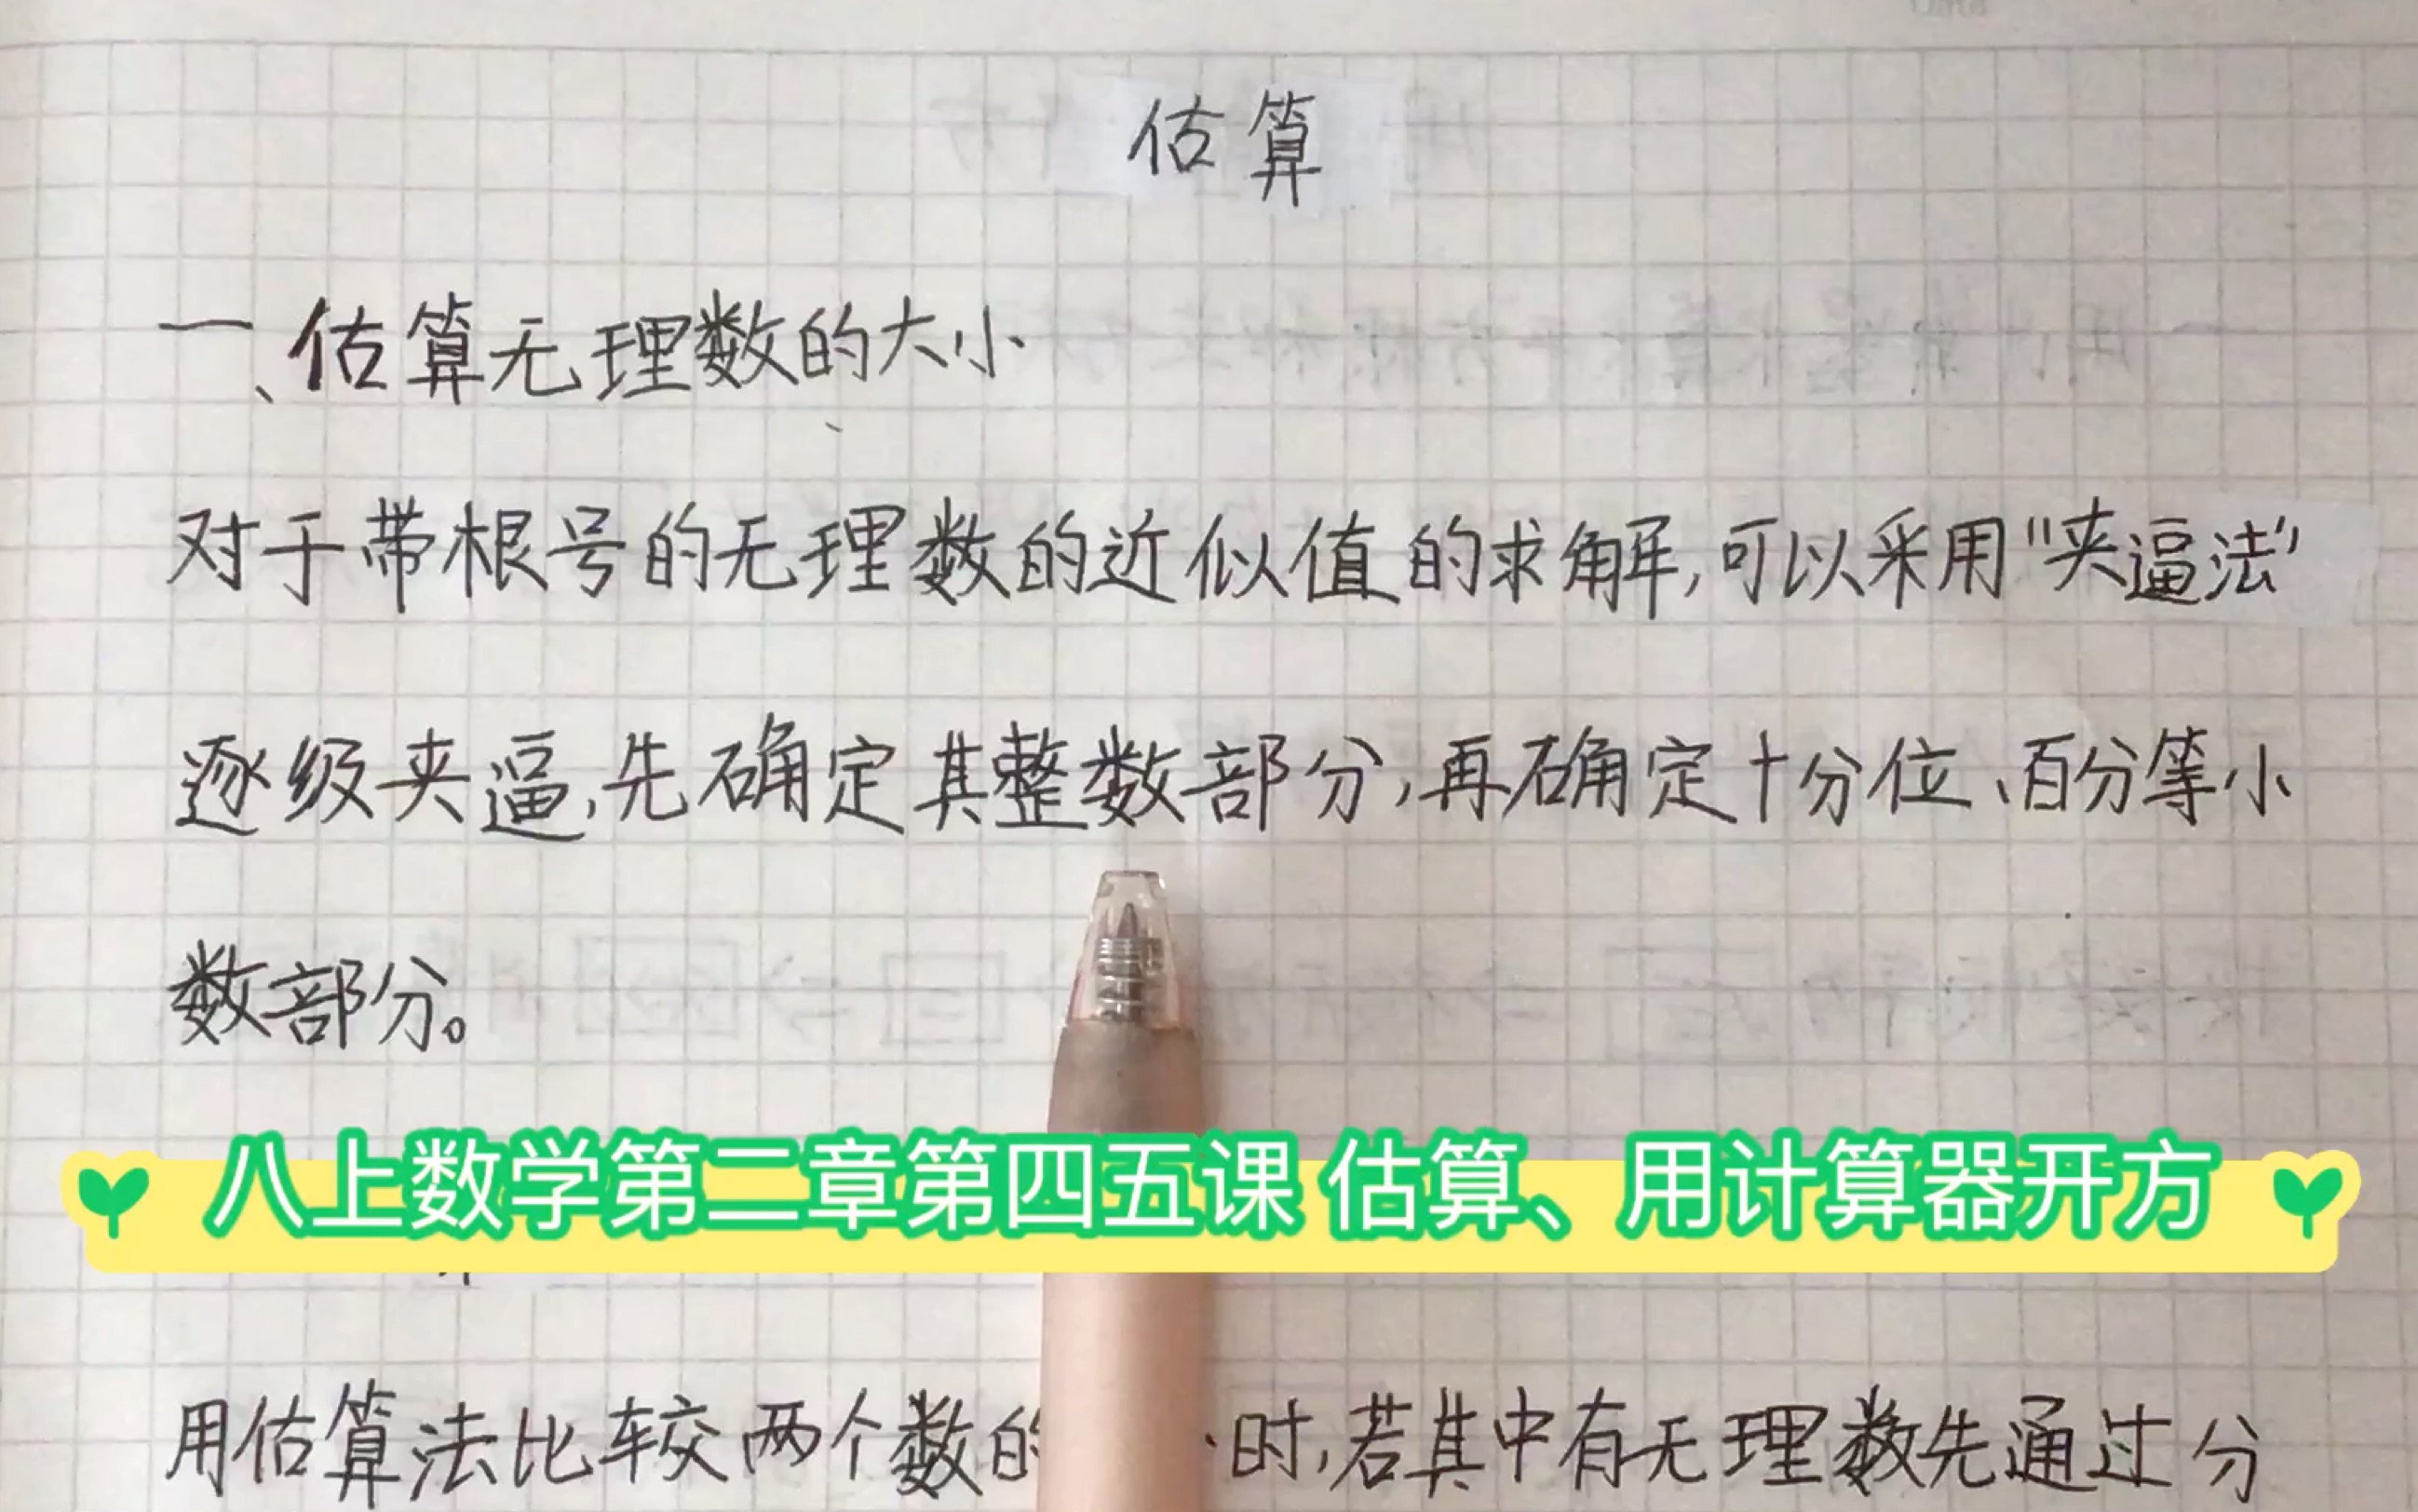 估算
一、估算无理数的大小
对于带根号的无理数的近似值的求解,可以采用“夹逼法”
逐级夹逼,先确定其整数部分,再确定十分位、百分等小
数部分。
八上数学第二章第四五课 估算、用计算器开方
用估算法比较两个数的 时,若其中有无理数先通过分